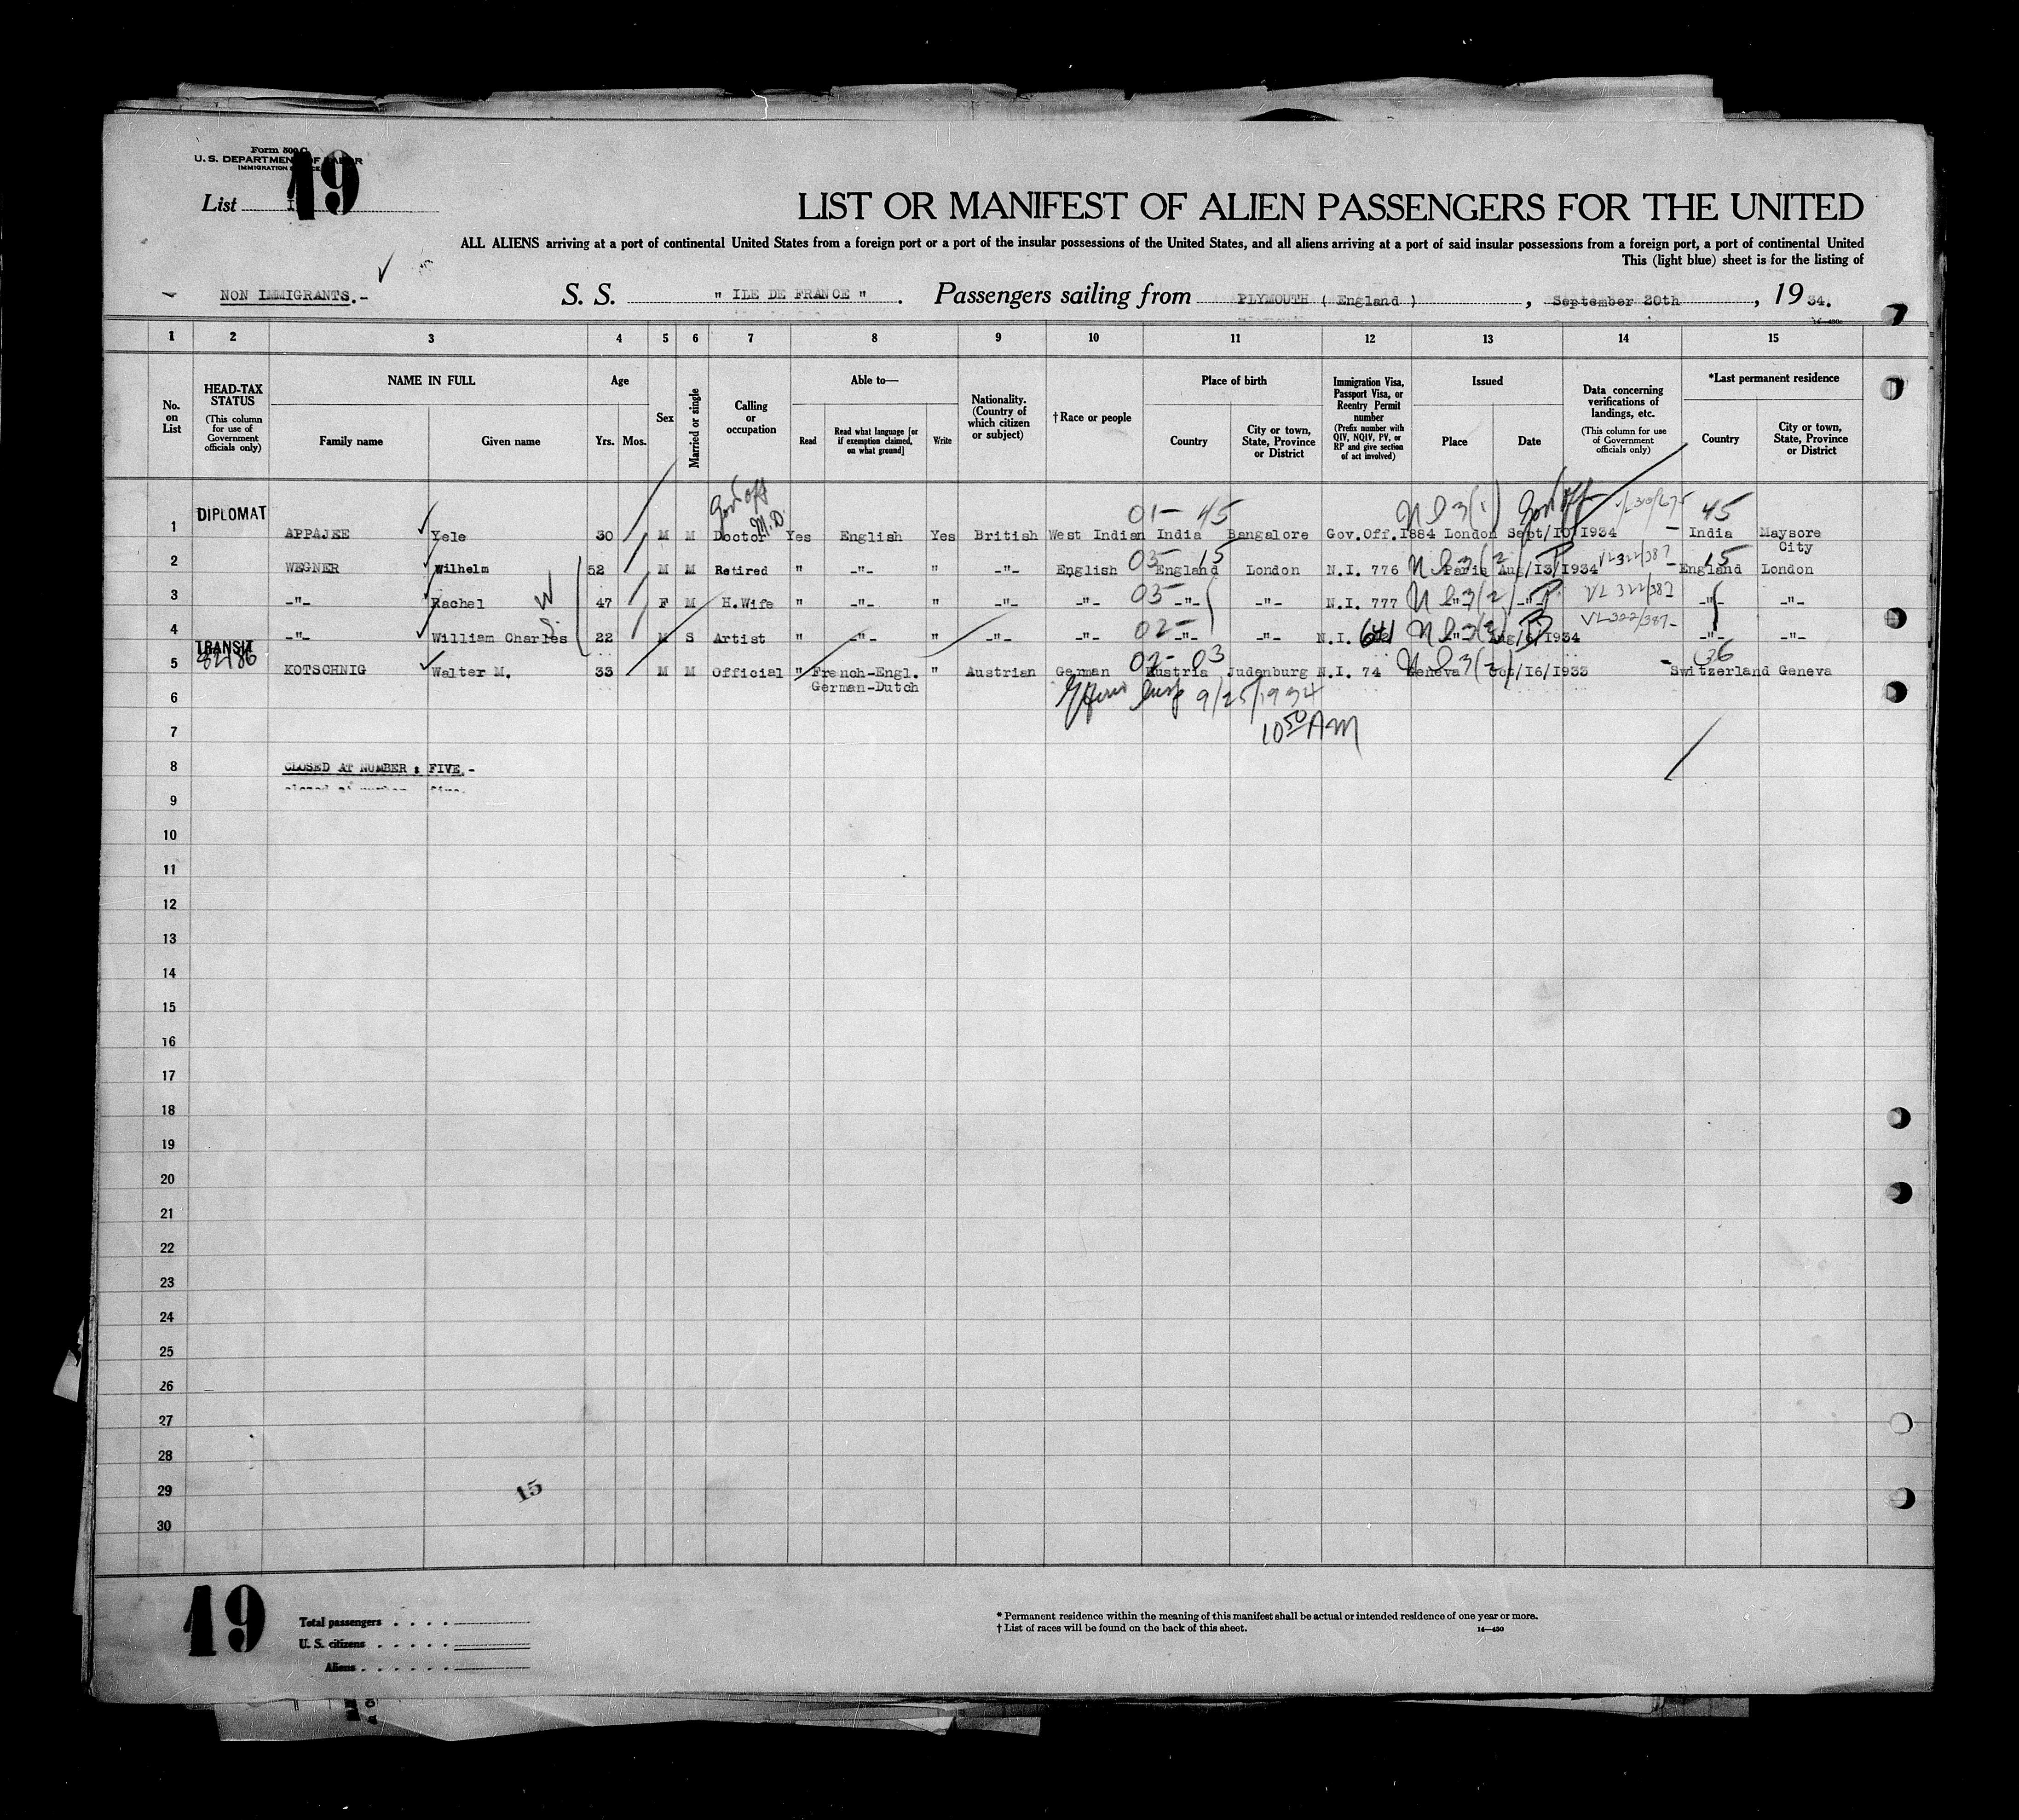 Form 500 C
U. S. DEPARTMENT OF LABOR
IMMIGRATION SERVICE
List 19
LIST OR MANIFEST OF ALIEN PASSENGERS FOR THE UNITED
ALL ALIENS arriving at a port of continental United States from a foreign port or a port of the insular possessions of the United States, and all aliens arriving at a port of said insular possessions from a foreign port, a port of continental United
This (light blue) sheet is for the listing of
NON IMMIGRANTS.- S. S. " ILE DE FRANCE ". Passengers sailing from PLYMOUTH ( England ), September 20th, 19 34.
1 2 3 4 5 6 7 8 9 10 11 12 13 14 15
No. on List
HEAD-TAX STATUS (This column for use of Government officials only)
NAME IN FULL Family name Given name
Age Yrs. Mos.
Sex
Married or single
Calling or occupation
Able to— Read Read what language [or if exemption claimed, on what ground] Write
Nationality. (Country of which citizen or subject)
† Race or people
Place of birth Country City or town, State, Province or District
Immigration Visa, Passport Visa, or Reentry Permit number (Prefix number with QIV, NQIV, PV, or RP and give section of act involved)
Issued Place Date
Data concerning verifications of landings, etc. (This column for use of Government officials only)
*Last permanent residence Country City or town, State, Province or District
Gov't off M.D. 01- 45 Nl 3(1) Gov't off 45
1 DIPLOMAT APPAJEE Yele 30 M M Doctor Yes English Yes British West Indian India Bangalore Gov.Off.1884 London Sept/10/1934 India Maysore City
03 15 Nl 3(2) P VL322/387 15
2 WEGNER Wilhelm 52 M M Retired " -"- " -"- English England London N.I. 776 Paris Aug/13/1934 England London
W 03 Nl 3(2) P VL 322/387
3 -"- Rachel 47 F M H.Wife " -"- " -"- -"- -"- -"- N.I. 777 -"- -"- -"- -"-
S. 02- 641 Nl 3(2) VL322/387-
4 -"- William Charles 22 M S Artist " -"- " -"- -"- -"- -"- N.I. -"- Aug/6/1934 -"- -"-
TRANSIT 02- 03 Nl 3(2) 36
5 KOTSCHNIG Walter M. 33 M M Official " French-Engl. German-Dutch " Austrian German Austria Judenburg N.I. 74 Geneva Oct/16/1933 Switzerland Geneva
6 Insp 9/25/1934
7 10 50 AM
8 CLOSED AT NUMBER : FIVE.-
9
10
11
12
13
14
15
16
17
18
19
20
21
22
23
24
25
26
27
28
29 15
30
19
Total passengers . . . .
U. S. citizens . . . . .
Aliens . . . . . .
* Permanent residence within the meaning of this manifest shall be actual or intended residence of one year or more.
† List of races will be found on the back of this sheet. 14—430